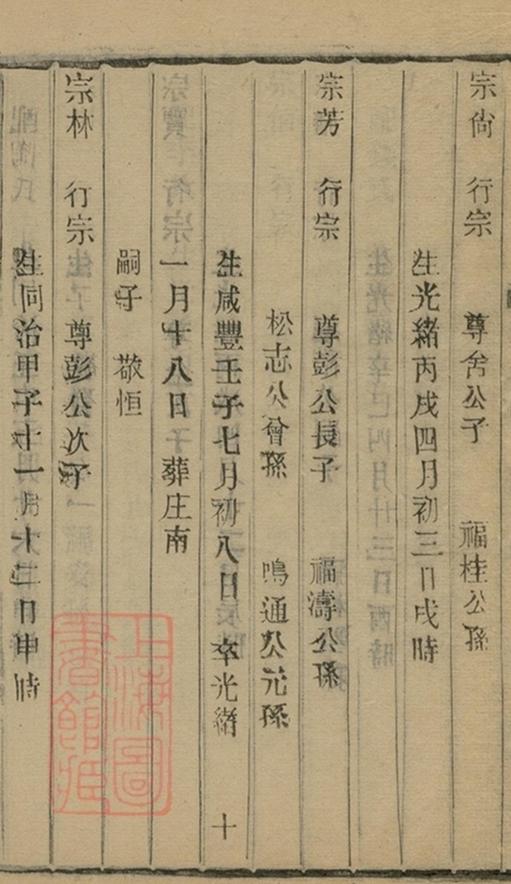 宗尙 行宗 尊舍公子 福桂公孫
生光緒丙戌四月初三日戌時
宗芳 行宗 尊彭公長子 福濤公孫
松志公曾孫 鳴通公元孫
生咸豐壬子七月初八日 卒光緒
一月十八日 葬庄南
嗣子 敬恒
宗林 行宗 尊彭公次子
生同治甲子十一月十二日申時
十
上海圖書館藏